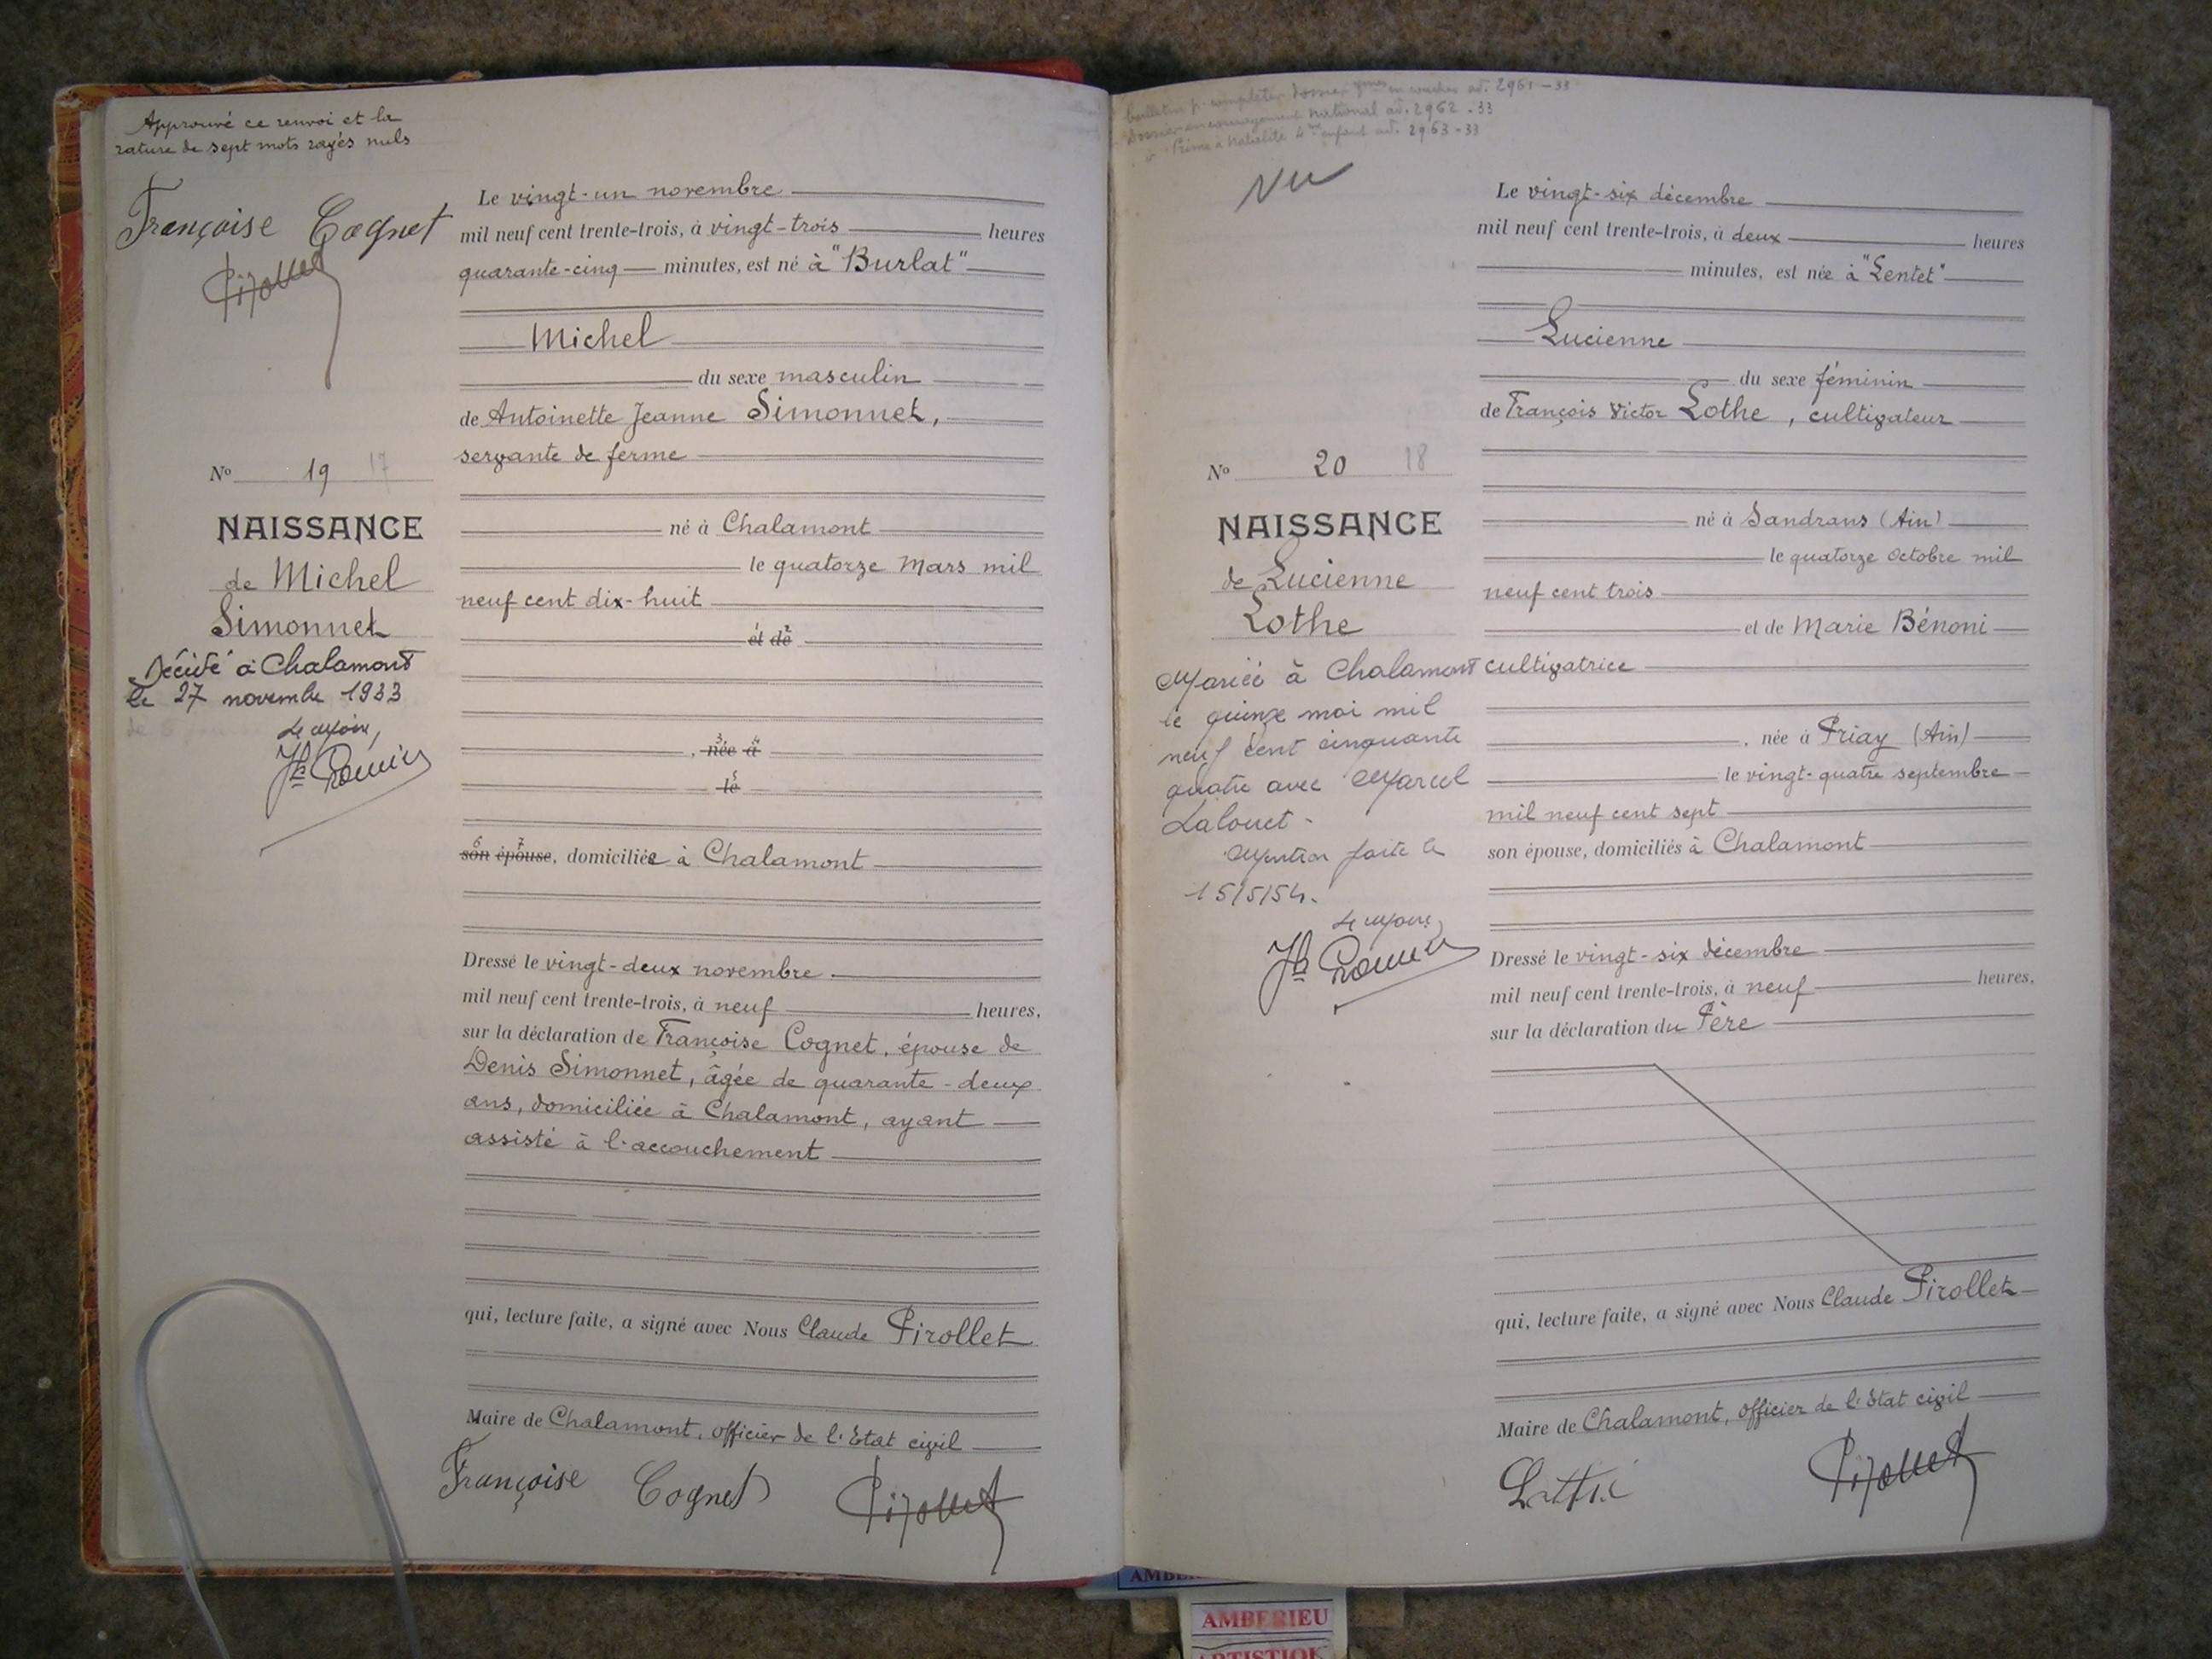 Approuvé ce renvoi et la
rature de sept mots rayés nuls
Françoise Cognet
Pirollet
Le vingt-un novembre
mil neuf cent trente-trois, à vingt-trois heures
quarante-cinq minutes, est né à "Burlat"
Michel
du sexe masculin
de Antoinette Jeanne Simonnet,
servante de ferme
né à Chalamont
le quatorze Mars mil
neuf cent dix-huit
1 2
et de
3 4
, née à
5
le
6 7
son épouse, domiciliée à Chalamont
Dressé le vingt-deux novembre
mil neuf cent trente-trois, à neuf heures,
sur la déclaration de Françoise Cognet, épouse de
Denis Simonnet, âgée de quarante-deux
ans, domiciliée à Chalamont, ayant
assisté à l'accouchement
qui, lecture faite, a signé avec Nous Claude Pirollet
Maire de Chalamont, officier de l'Etat civil
Françoise Cognet Pirollet
No 19 17
NAISSANCE
de Michel
Simonnet
Décédé à Chalamont
le 27 novembre 1933
Le Maire,
bulletin p. compléter dossier en couches ad. 2961-33
Dossier encouragement national ad. 2962-33
Prime à Natalité 4me enfant ad. 2963-33
Vu
Le vingt-six décembre
mil neuf cent trente-trois, à deux heures
minutes, est née à "Lentet"
Lucienne
du sexe féminin
de François Victor Lothe, cultivateur
né à Sandrans (Ain)
le quatorze Octobre mil
neuf cent trois
et de Marie Bénoni
cultivatrice
, née à Priay (Ain)
le vingt-quatre septembre
mil neuf cent sept
son épouse, domiciliés à Chalamont
Dressé le vingt-six décembre
mil neuf cent trente-trois, à neuf heures,
sur la déclaration du Père
qui, lecture faite, a signé avec Nous Claude Pirollet
Maire de Chalamont, officier de l'Etat civil
Pirollet
No 20 18
NAISSANCE
de Lucienne
Lothe
Mariée à Chalamont
le quinze mai mil
neuf cent cinquante
quatre avec Marcel
Lalouet.
Mention faite le
15/5/54.
Le Maire,
AMBERIEU